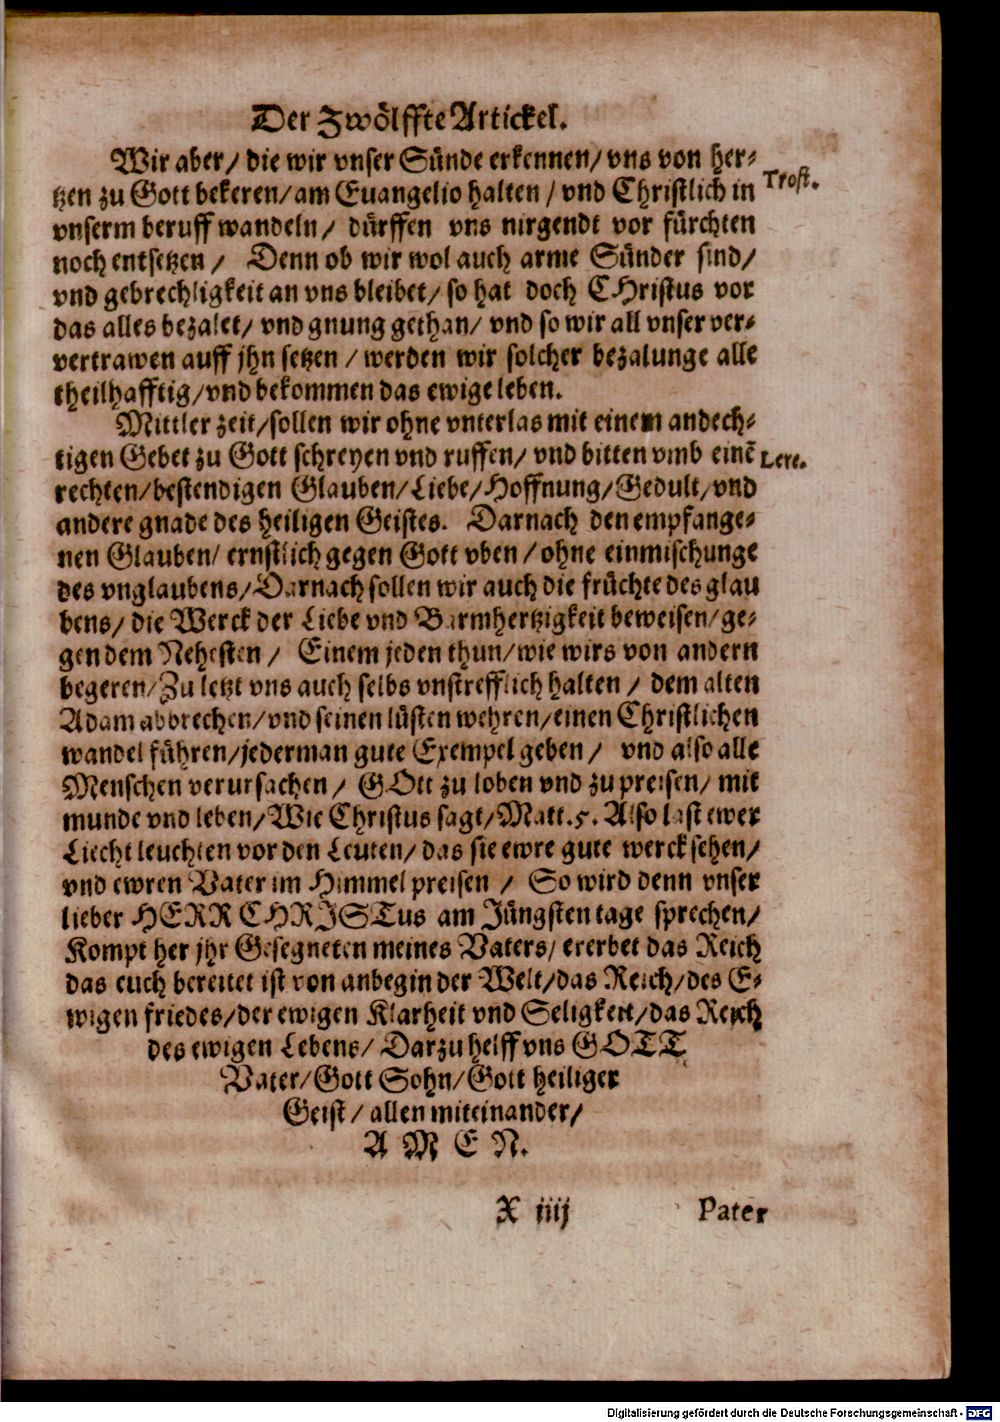 Der Zwölffte Artickel.
Wir aber/ die wir vnser Sünde erkennen/ vns von her-
tzen zu Gott bekeren/ am Euangelio halten / vnd Christlich in
Trost.
vnserm beruff wandeln/ dürffen vns nirgendt vor fürchten
noch entsetzen / Denn ob wir wol auch arme Sünder sind/
vnd gebrechligkeit an vns bleibet/ so hat doch CHristus vor
das alles bezalet/ vnd gnung gethan/ vnd so wir all vnser ver-
vertrawen auff jhn setzen / werden wir solcher bezalunge alle
theilhafftig/ vnd bekommen das ewige leben.
Mittler zeit/ sollen wir ohne vnterlas mit einem andech-
tigen Gebet zu Gott schreyen vnd ruffen/ vnd bitten vmb einē
Lere.
rechten/ bestendigen Glauben/ Liebe/ Hoffnung/ Gedult/ vnd
andere gnade des heiligen Geistes. Darnach den empfange-
nen Glauben/ ernstlich gegen Gott vben / ohne einmischunge
des vnglaubens/ Darnach sollen wir auch die früchte des glau
bens/ die Werck der Liebe vnd Barmhertzigkeit beweisen/ ge-
gen dem Nehesten / Einem jeden thun/ wie wirs von andern
begeren/ Zu letzt vns auch selbs vnstrefflich halten / dem alten
Adam abbrechen/ vnd seinen lüsten wehren/ einen Christlichen
wandel führen/ jederman gute Exempel geben / vnd also alle
Menschen verursachen / GOtt zu loben vnd zu preisen/ mit
munde vnd leben/ Wie Christus sagt/ Matt. 5. Also last ewer
Liecht leuchten vor den Leuten/ das sie ewre gute werck sehen/
vnd ewren Vater im Himmel preisen / So wird denn vnser
lieber HERR CHRISTus am Jüngsten tage sprechen/
Kompt her jhr Gesegneten meines Vaters/ ererbet das Reich
das euch bereitet ist von anbegin der Welt/ das Reich/ des E-
wigen friedes/ der ewigen Klarheit vnd Seligkeit/ das Reich
des ewigen Lebens/ Darzu helff vns GOTT
Vater/ Gott Sohn/ Gott heiliger
Geist / allen miteinander/
A M E N.
X iiij Pater
Digitalisierung gefördert durch die Deutsche Forschungsgemeinschaft - DFG